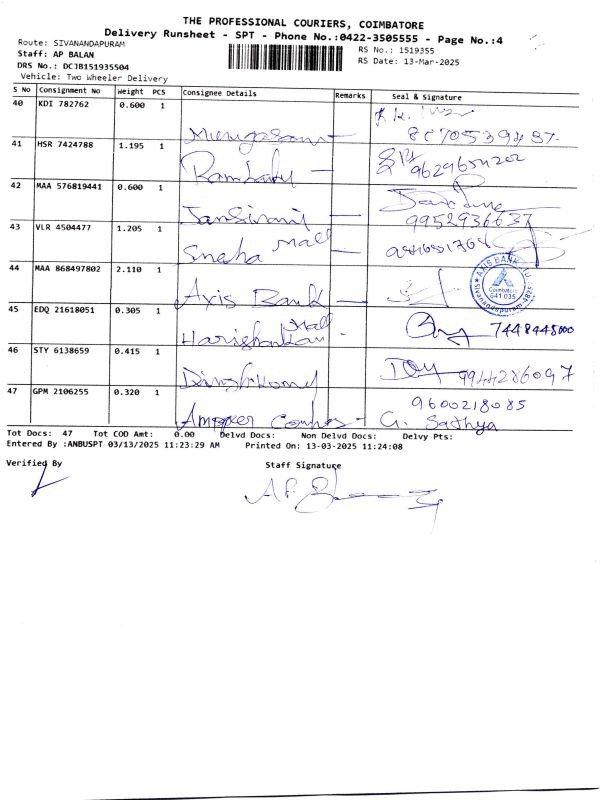 THE PROFESSIONAL COURIERS, COIMBATORE
Delivery Runsheet - SPT - Phone No.:0422-3505555 - Page No.:4
Route: SIVANANDAPURAM
RS No.: 1519355
Staff: AP BALAN
RS Date: 13-Mar-2025
DRS No.: DCJB151935504
Vehicle: Two Wheeler Delivery
S No Consignment No Weight PCS Consignee Details Remarks Seal & Signature
40 KDI 782762 0.600 1
41 HSR 7424788 1.195 1
42 MAA 576819441 0.600 1 9952936637
43 VLR 4504477 1.205 1 Sneha Mall
44 MAA 868497802 2.110 1 Axis Bank AXIS BANK Coimbatore 641 035
45 EDQ 21618051 0.305 1 Mall 7448448000
46 STY 6138659 0.415 1 9944286097
47 GPM 2106255 0.320 1 9600218085
G. Sathya
Tot Docs: 47 Tot COD Amt: 0.00 Delvd Docs: Non Delvd Docs: Delvy Pts:
Entered By :ANBUSPT 03/13/2025 11:23:29 AM Printed On: 13-03-2025 11:24:08
Verified By Staff Signature